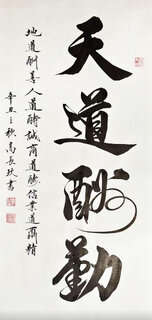 天道酬勤
地道酬善人道酬誠商道酬信業道酬精
辛丑之秋高長玖書